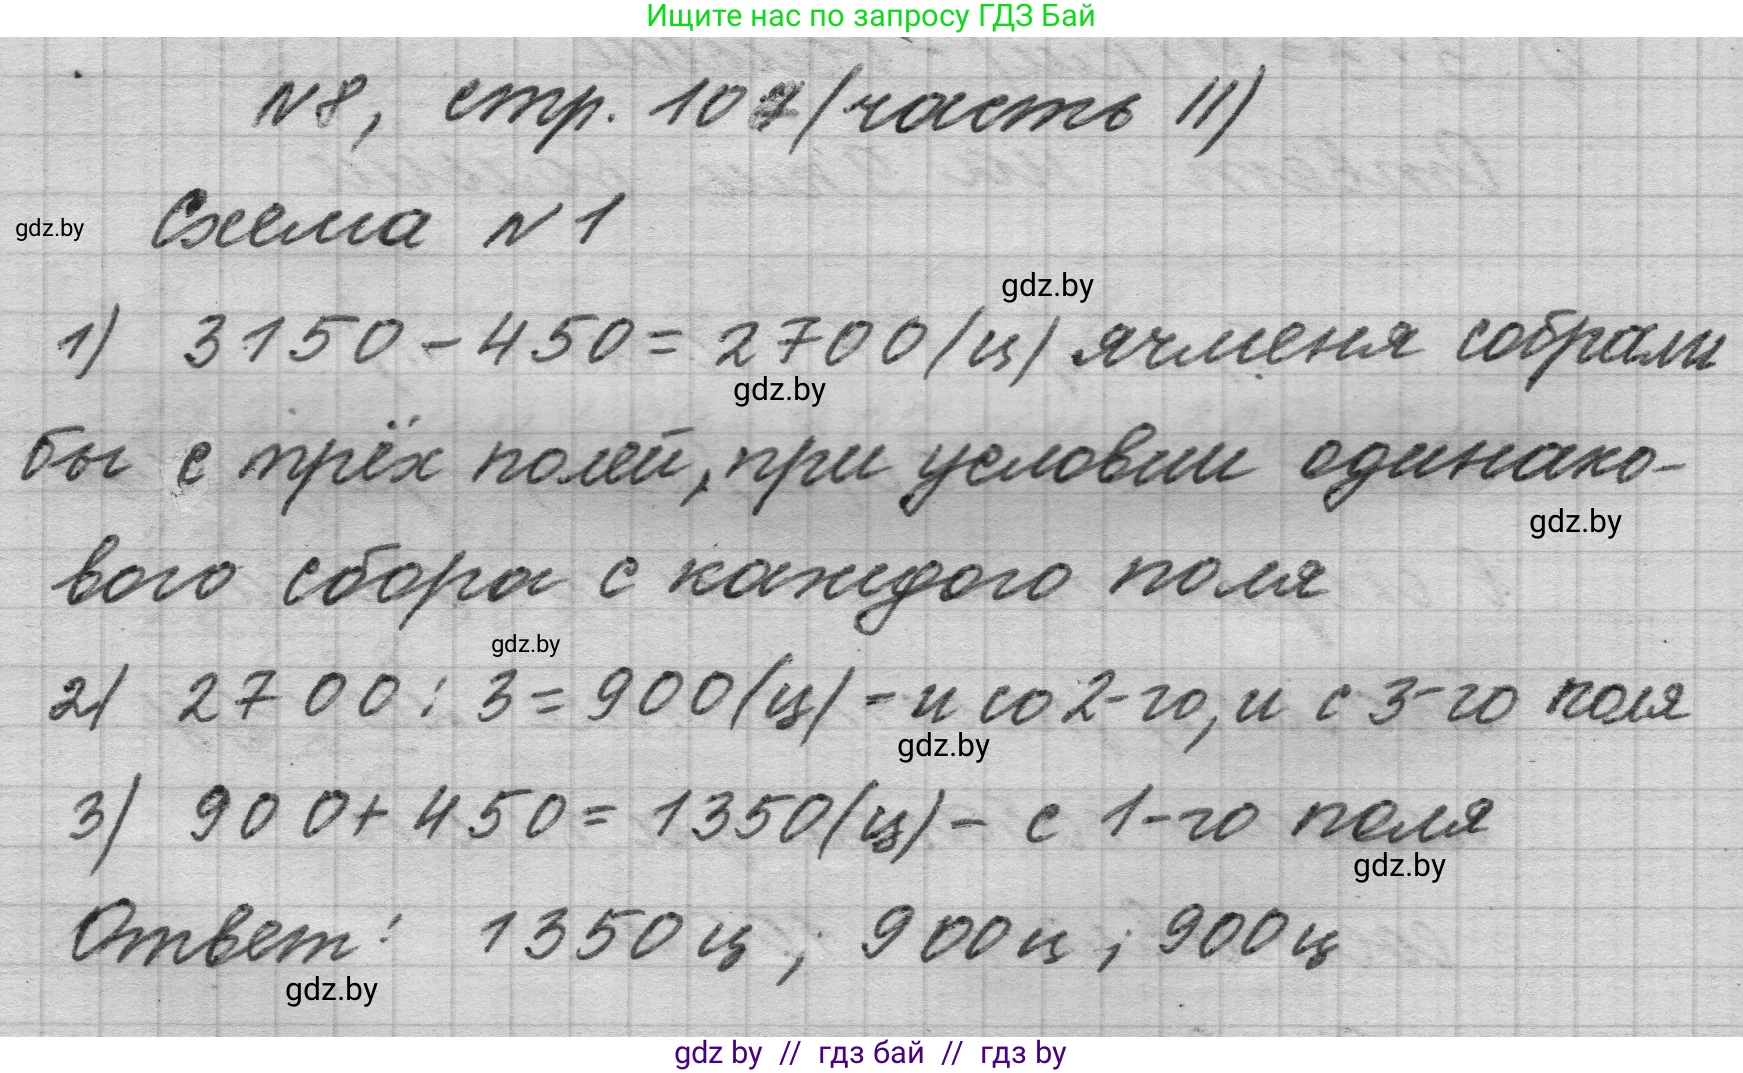 Ищите нас по запросу ГДЗ Бай
№8, стр. 107 (часть II)
Схема №1
gdz.by
gdz.by
1) 3150 - 450 = 2700 (ц) ячменя собрали
gdz.by
бы с трёх полей, при условии одинако-
gdz.by
вого сбора с каждого поля
gdz.by
2) 2700 : 3 = 900 (ц) - и со 2-го, и с 3-го поля
gdz.by
3) 900 + 450 = 1350 (ц) - с 1-го поля
gdz.by
Ответ: 1350 ц; 900 ц; 900 ц
gdz.by
gdz by // гдз бай // гдз by